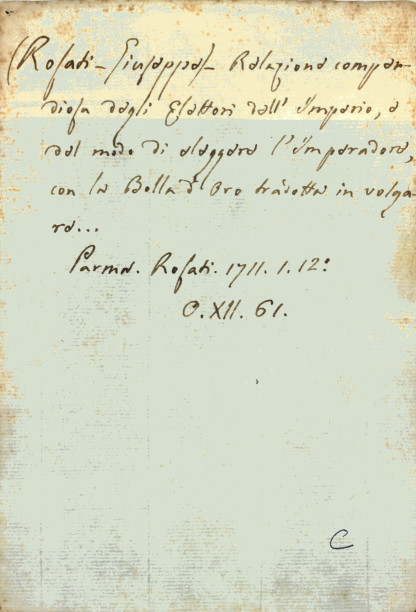 (Rosati - Giuseppe) - Relazione compen-
diosa degli Elettori dell' Imperio, e
del modo di eleggere l'Imperadore,
con la Bolla d'Oro tradotta in volga-
re...
Parma. Rosati. 1711. 1. 12º
O. XII. 61.
C